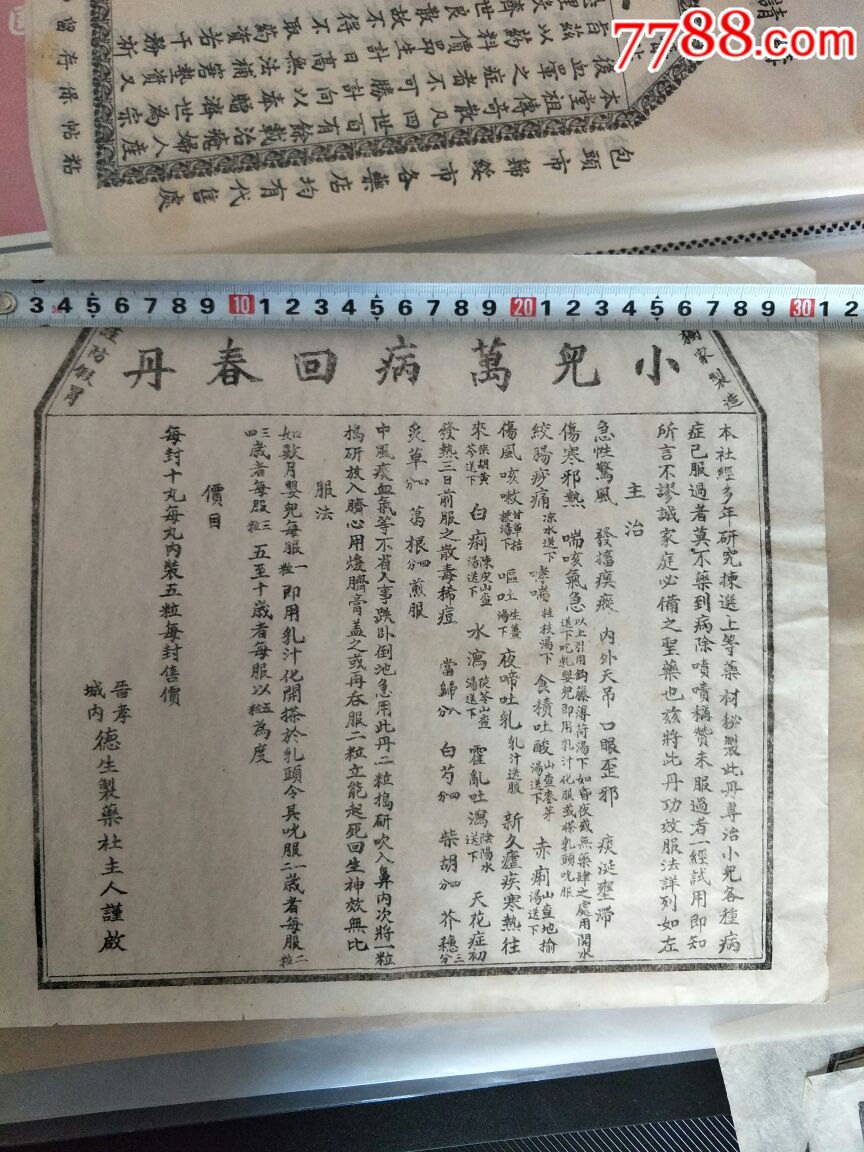 7788.com
包頭市歸綏市各藥店均有代售處
3 4 5 6 7 8 9 10 1 2 3 4 5 6 7 8 9 20 1 2 3 4 5 6 7 8 9 30 1 2
獨家製造
謹防假冒
小兒萬病回春丹
本社經多年研究揀選上等藥材秘製此丹專治小兒各種病
症已服過者莫不藥到病除嘖嘖稱贊未服過者一經試用即知
所言不謬誠家庭必備之聖藥也茲將此丹功效服法詳列如左
主治
急性驚風 發搐瘈瘲 內外天吊 口眼歪邪 痰涎壅滯
傷寒邪熱 喘咳氣急 以上引用鈎籐薄荷湯下如昏夜或無藥肆之處用開水送下吃乳嬰兒即用乳汁化服或搽乳頭吮服
絞腸痧痛 凉水送下 哮喘 桂枝湯下 食積吐酸 山查麥芽湯送下 赤痢 山查地榆湯送下
傷風咳嗽 甘草桔梗湯下 嘔吐 生薑湯下 夜啼吐乳 乳汁送服 新久瘧疾寒熱往
來 柴胡黃芩送下 白痢 陳皮山查湯送下 水瀉 茯苓山查湯送下 霍亂吐瀉 陰陽水送下 天花症初
發熱三日前服之散毒稀痘 當歸八分 白芍四分 柴胡四分 芥穗三分
炙草四分 葛根四分 煎服
中風痰血氣等不省人事跌卧倒地急用此丹二粒搗研吹入鼻內次將一粒
搗研放入臍心用煖臍膏蓋之或再吞服二粒立能起死回生神效無比
服法
如數月嬰兒每服一粒即用乳汁化開搽於乳頭令其吮服一二歲者每服二粒
三四歲者每服三粒 五至十歲者每服以五粒為度
價目
每封十丸每丸內裝五粒每封售價
晉孝城內德生製藥社主人謹啟